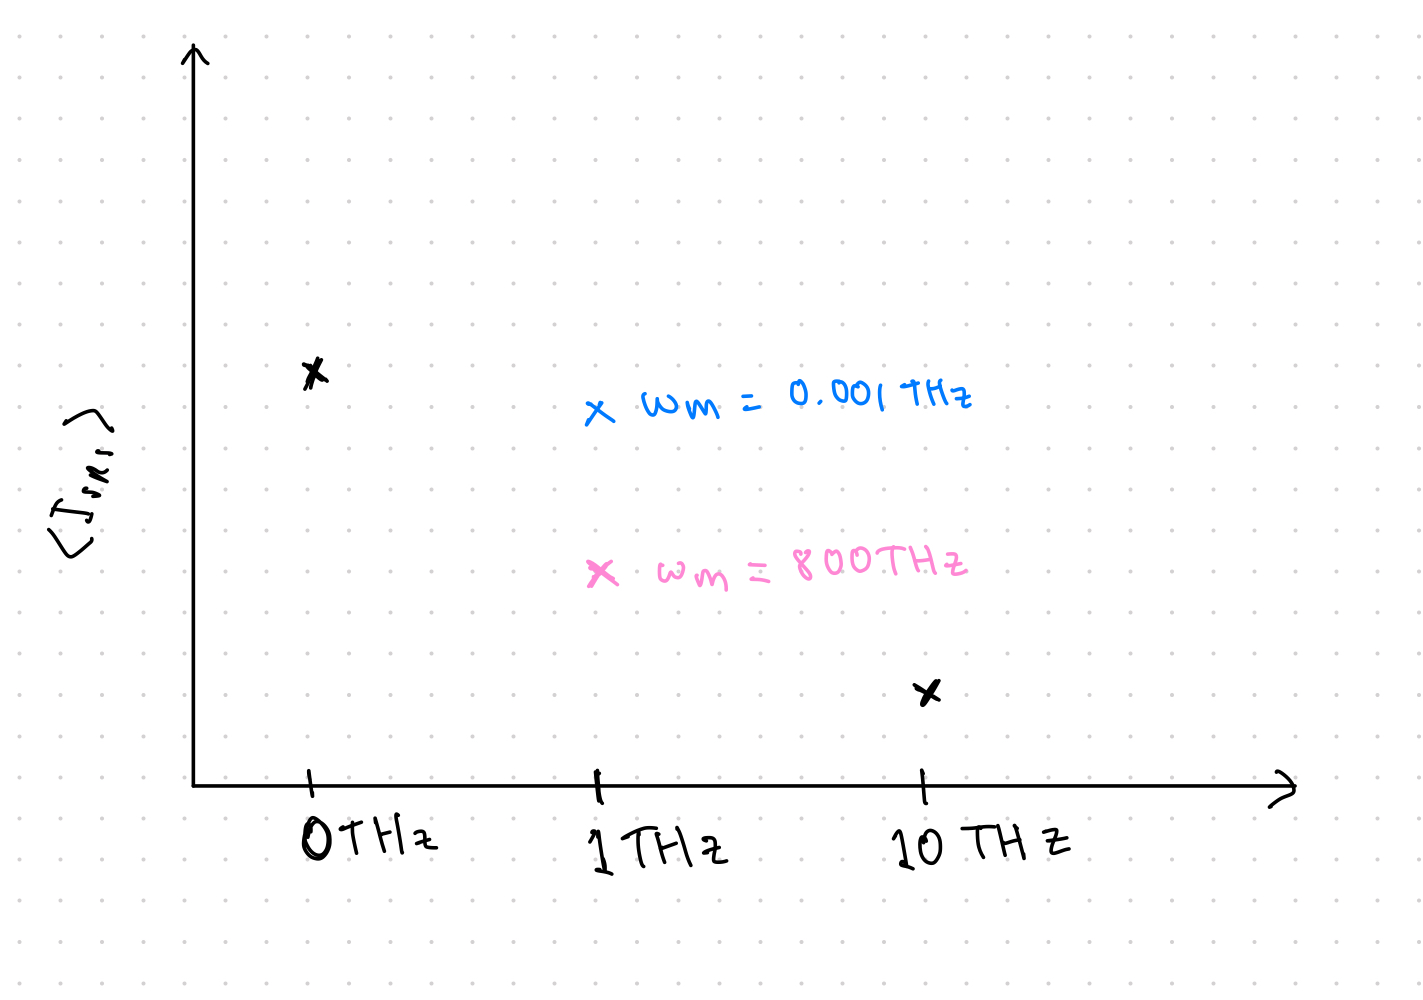 ωm = 0.001 THz
ωm = 800THz
0THz
1THz
10THz